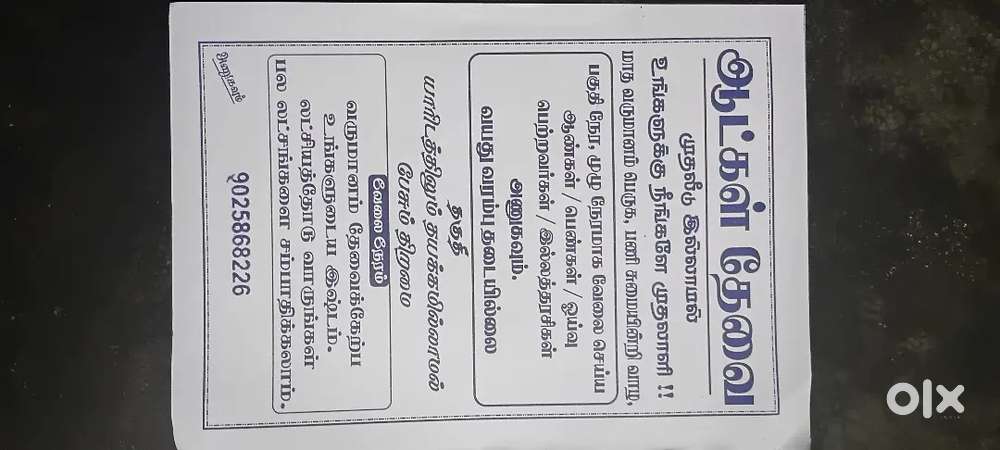 ஆட்கள் தேவை
முதலீடு இல்லாமல்
உங்களுக்கு நீங்களே முதலாளி !!
மாத வருமானம் பெருக, பணி சுமையின்றி வாழ,
பகுதி நேர, முழு நேரமாக வேலை செய்ய
ஆண்கள் / பெண்கள் / ஓய்வு
பெற்றவர்கள் / இல்லத்தரசிகள்
அணுகவும்.
வயது வரம்பு தடையில்லை
தகுதி
யாரிடத்திலும் தயக்கமில்லாமல்
பேசும் திறமை
வேலை நேரம்
வருமானம் தேவைக்கேற்ப
உங்களுடைய இஷ்டம்.
லட்சியத்தோடு வாருங்கள்
பல லட்சங்களை சம்பாதிக்கலாம்.
அணுகவும்
9025868226
olx
INDIA